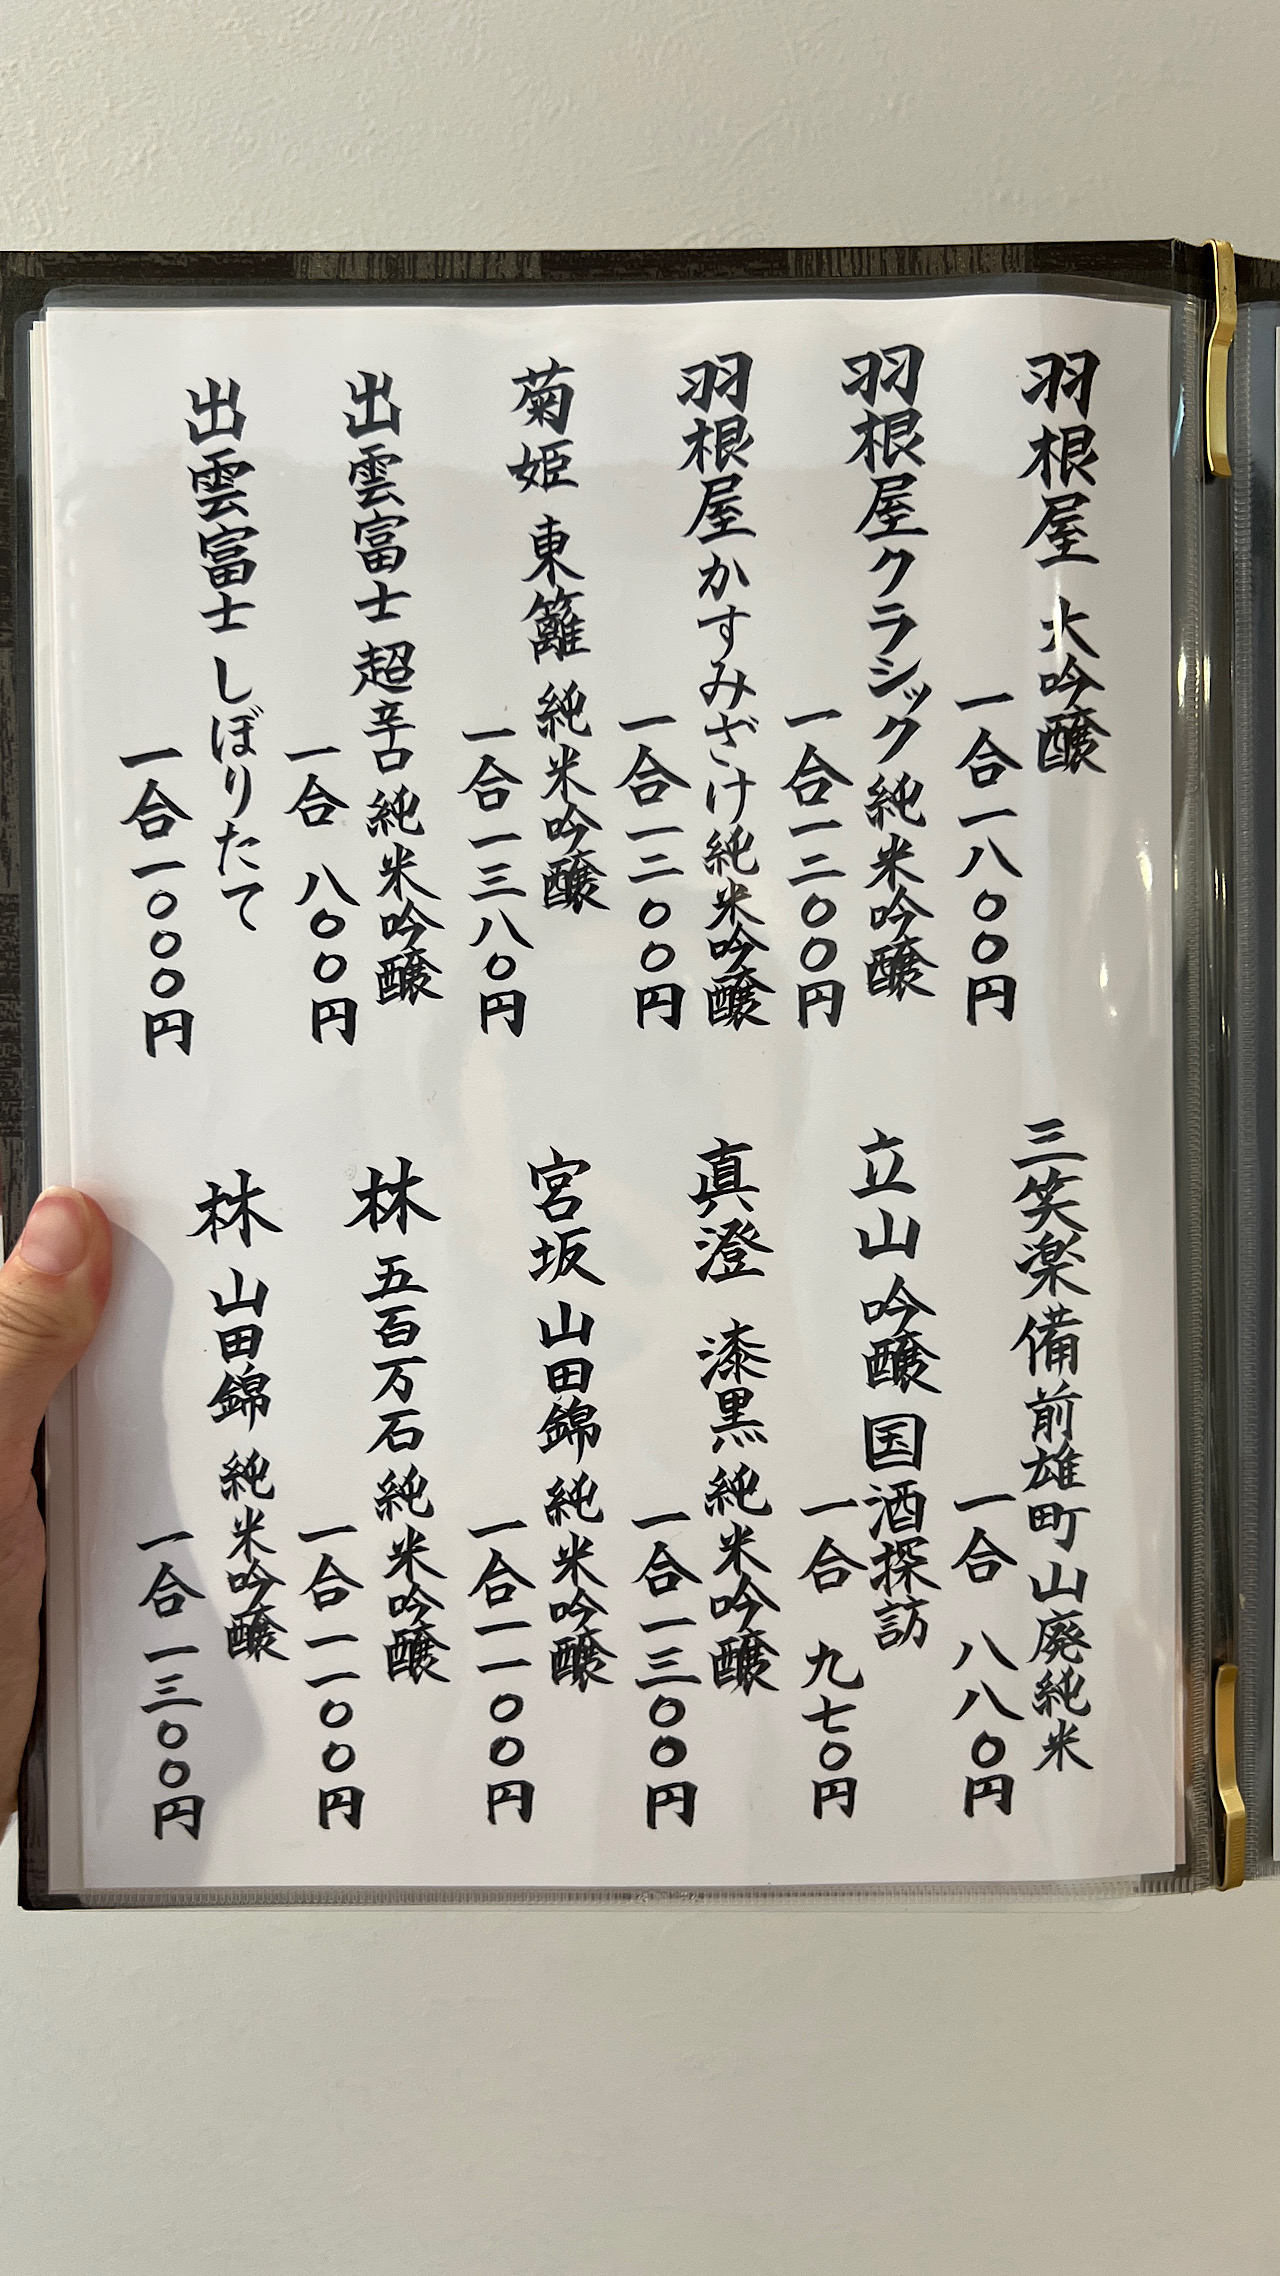 羽根屋 大吟醸
一合一八〇〇円
羽根屋クラシック純米吟醸
一合一二〇〇円
羽根屋かすみざけ純米吟醸
一合一二〇〇円
菊姫 東籬 純米吟醸
一合一三八〇円
出雲富士 超辛口 純米吟醸
一合 八〇〇円
出雲富士 しぼりたて
一合一〇〇〇円
三笑楽備前雄町山廃純米
一合 八八〇円
立山 吟醸 国酒探訪
一合 九七〇円
真澄 漆黒 純米吟醸
一合一三〇〇円
宮坂 山田錦 純米吟醸
一合一一〇〇円
林 五百万石 純米吟醸
一合一一〇〇円
林 山田錦 純米吟醸
一合一三〇〇円